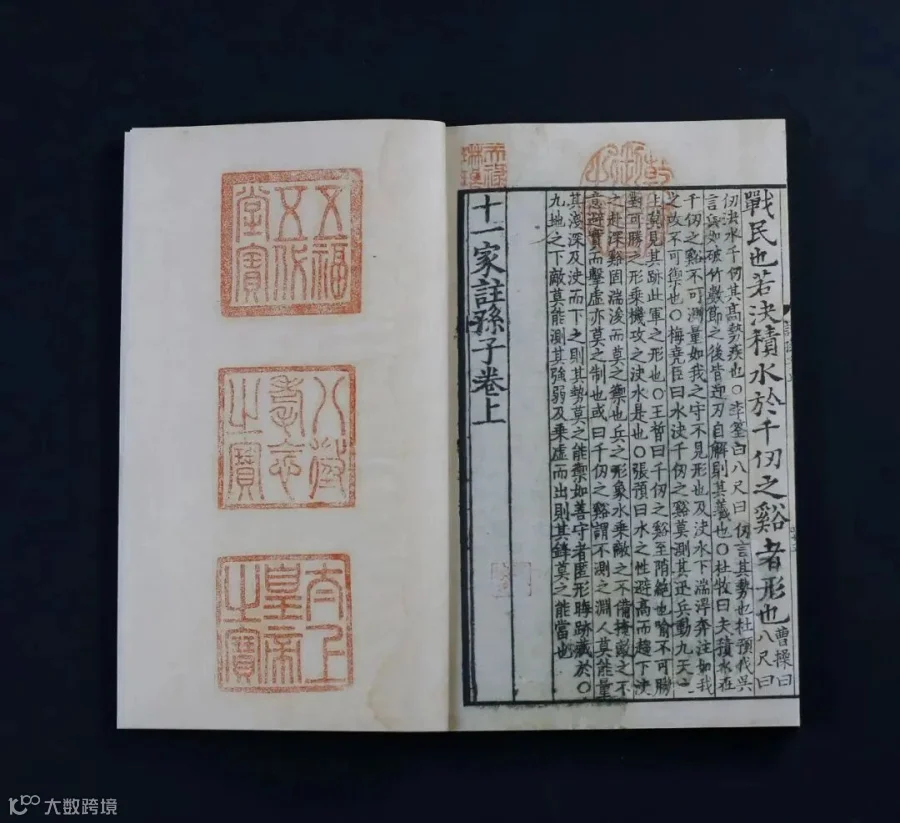 戰民也若決積水於千仞之谿者形也曹操曰八尺曰
仞決水千仞其高勢疾也○李筌曰八尺曰仞言其勢也杜預伐吳
言兵如破竹數節之後皆迎刃自解則其義也○杜牧曰夫積水在
千仞之谿不可測量如我之守不見形也及決水下湍浮奔注如我
之攻不可禦也○梅堯臣曰水決千仞之谿莫測其迅兵動九天之
上莫見其跡此軍之形也○王晳曰千仞之谿至陗絕也喻不可勝
對可勝之形乘機攻之決水是也○張預曰水之性避高而趨下決
之赴深谿固湍浚而莫之禦也兵之形象水乘敵之不備掩敵之不
意避實而擊虛亦莫之制也或曰千仞之谿謂不測之淵人莫能量
其淺深及決而下之則其勢莫之能禦如善守者匿形晦跡藏於○
九地之下敵莫能測其強弱及乘虛而出則其鋒莫之能當也
十一家註孫子卷上
天祿琳琅
五福五代堂寶
八徵耄念之寶
太上皇帝之寶
大数跨境